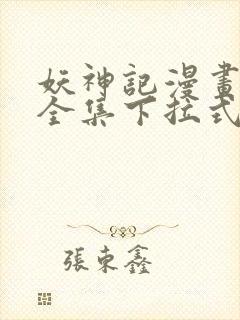 妖神記漫畫
全集下拉式
張東鑫